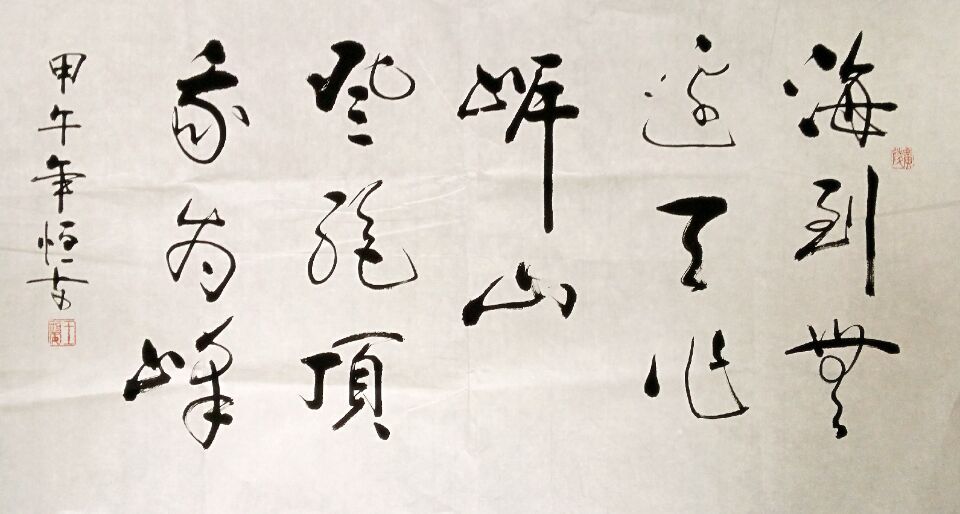 海到無
邊天作
岸山
登絕頂
我為峰
甲午年恒